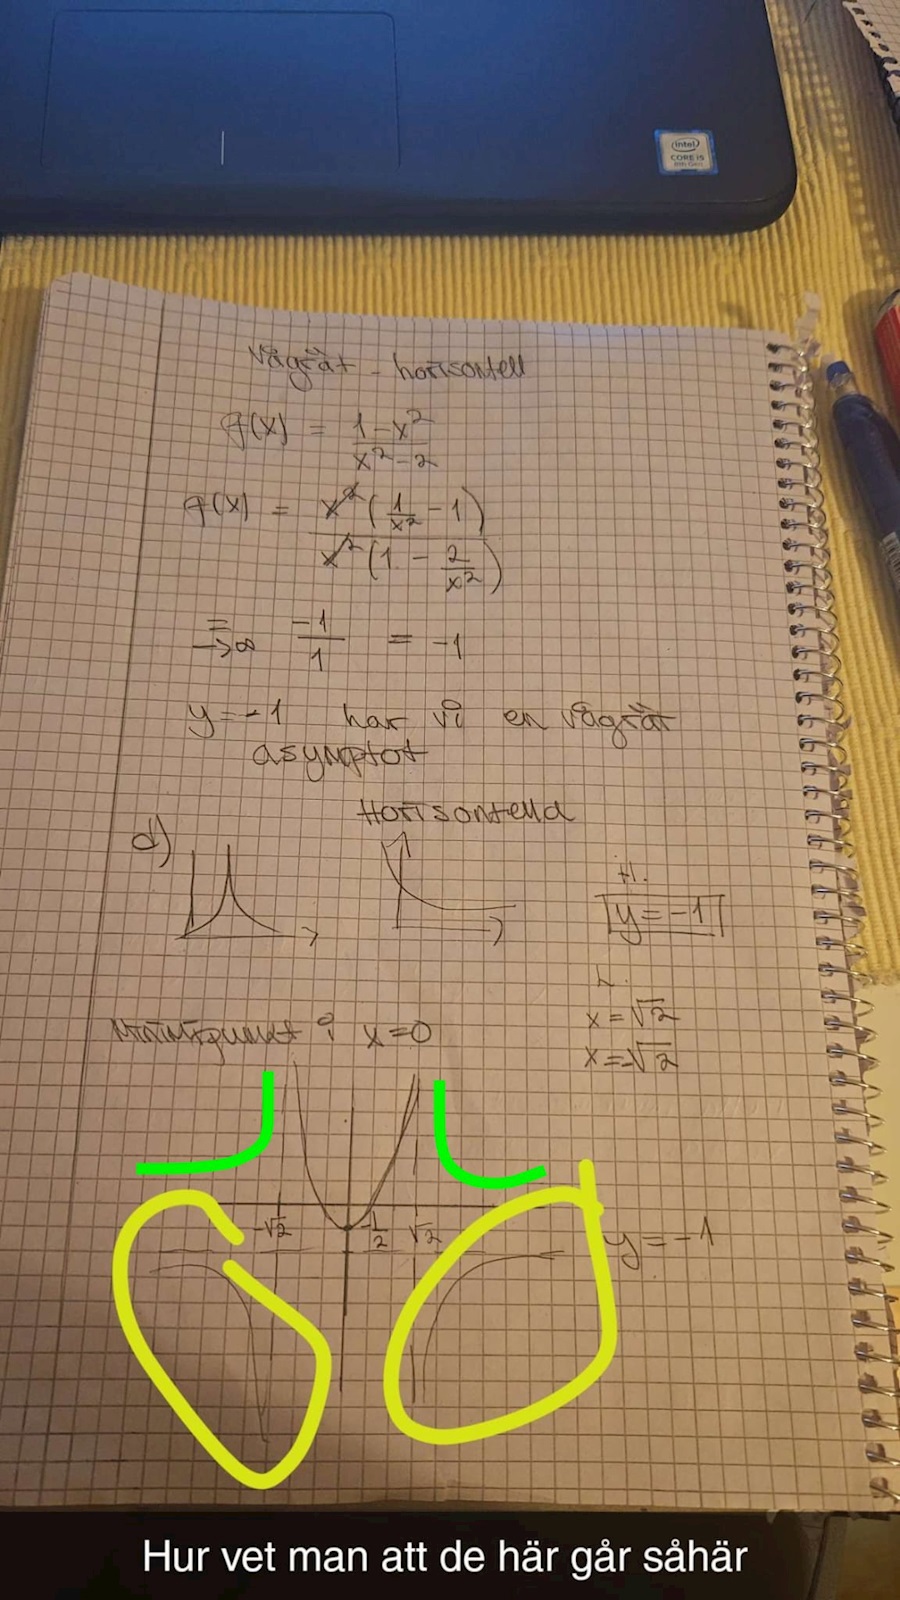 intel
CORE i5
8th Gen
Vågrät - horisontell
f(x) = 1-x²/x²-2
f(x) = x²(1/x² - 1)/x²(1 - 2/x²)
=→∞ -1/1 = -1
y=-1 har vi en vågrät
asymptot
Horisontella
d)
H.
y=-1
L.
x=√2
x=-√2
Minimipunkt i x=0
-√2 -1/2 √2
y=-1
Hur vet man att de här går såhär